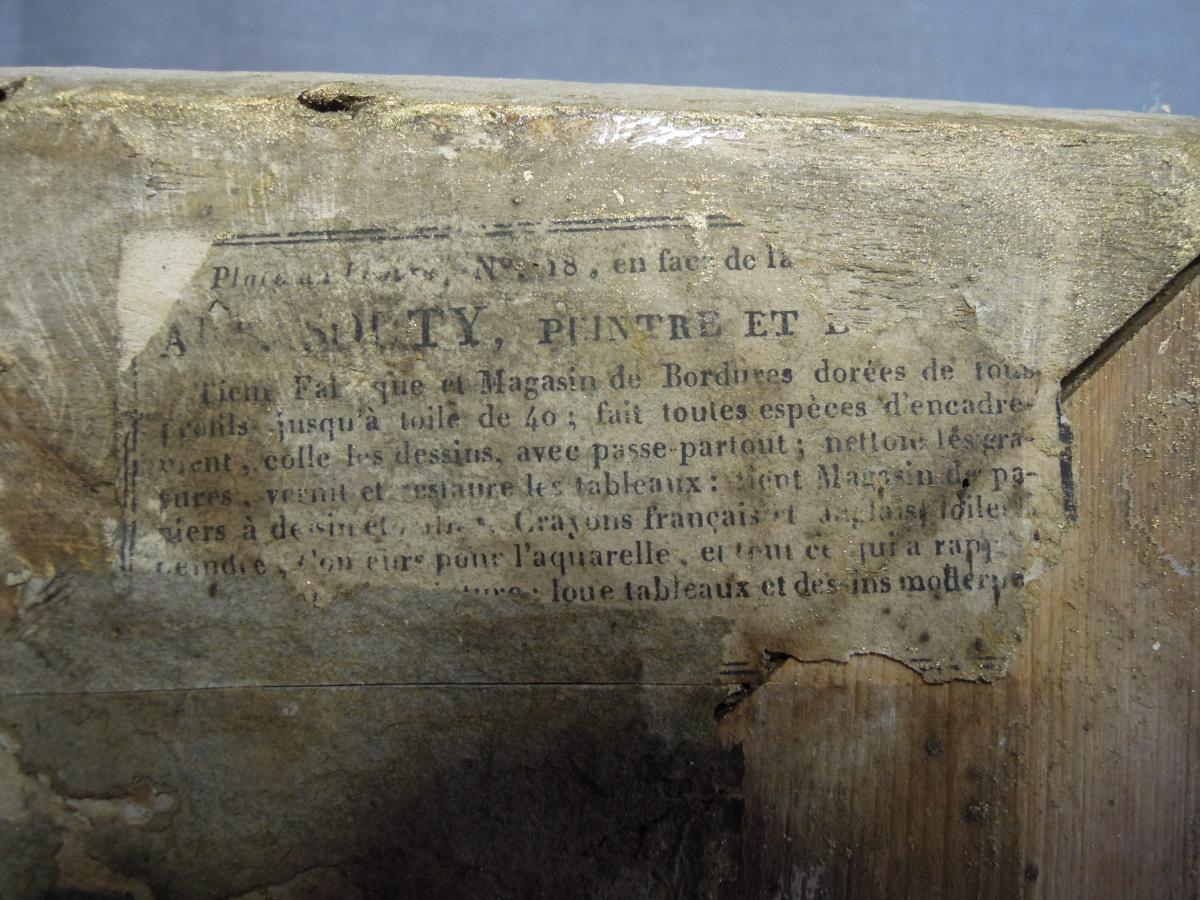 Place N°. 18, en face de la
SOUTY, PEINTRE ET
Tient Fabrique et Magasin de Bordures dorées de tous
profils jusqu'à toile de 40 ; fait toutes espèces d'encadre-
ment, colle les dessins, avec passe-partout ; nettoie les gra-
vures, vernit et restaure les tableaux : tient Magasin de pa-
piers à dessin et Crayons français et anglais, toiles à
peindre, Couleurs pour l'aquarelle, et tout ce qui a rapport
loue tableaux et dessins modernes